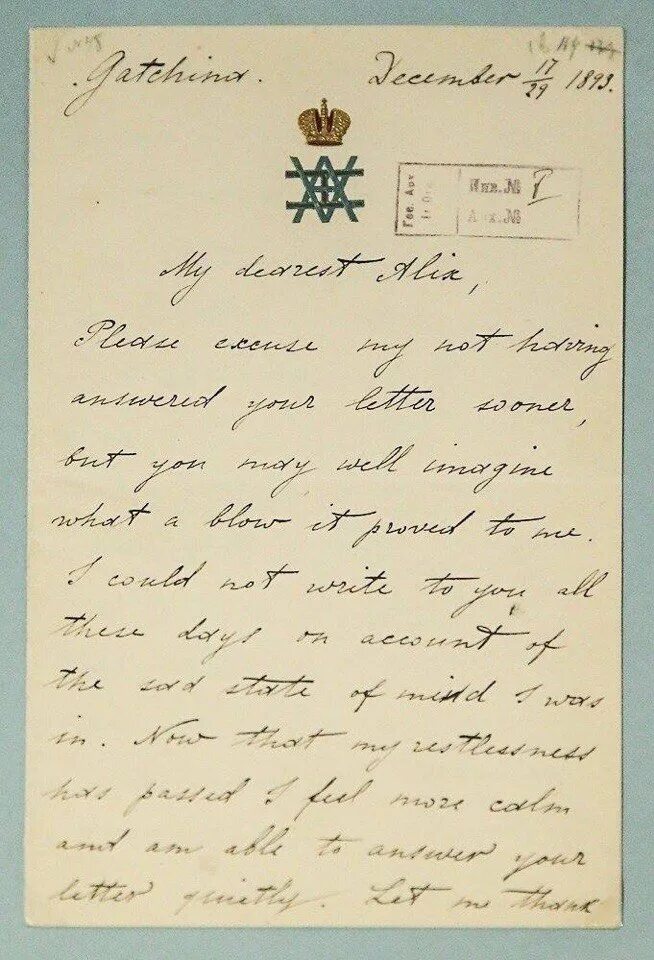 Gatchina. December 17/29 1893.
Гос. Арх.
Инв.№ I
Арх.№
My dearest Alix,
Please excuse my not having
answered your letter sooner,
but you may well imagine
what a blow it proved to me.
I could not write to you all
these days on account of
the sad state of mind I was
in. Now that my restlessness
has passed I feel more calm
and am able to answer your
letter quietly. Let me thank